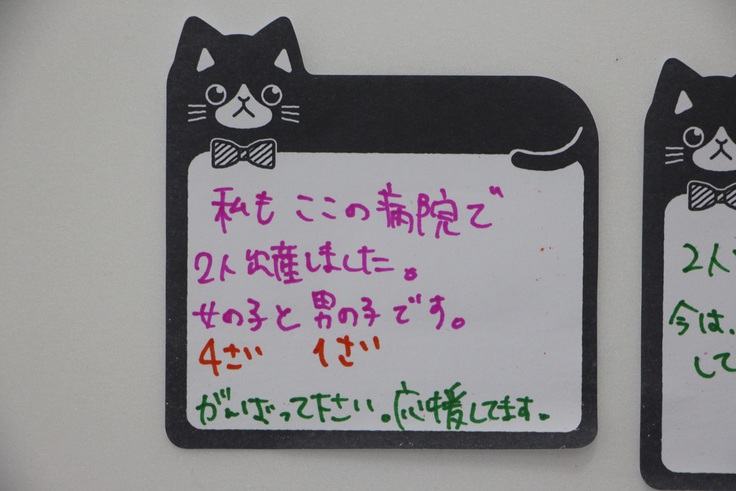 私も ここの病院で
2人出産しました。
女の子と男の子です。
4さい 1さい
がんばって下さい。応援してます。
2人
今は、
して